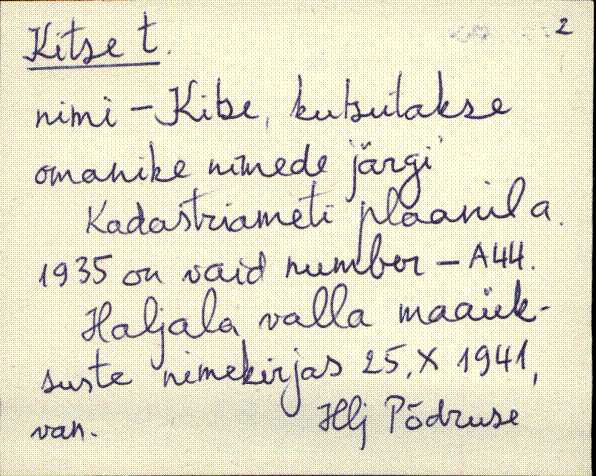 2
Kitse t.
nimi – Kitse, kutsutakse
omanike nimede järgi
Kadastriameti plaanil a.
1935 on vaid number – A44.
Haljala valla maaük-
suste nimekirjas 25. X 1941,
van.
Hlj Põdruse